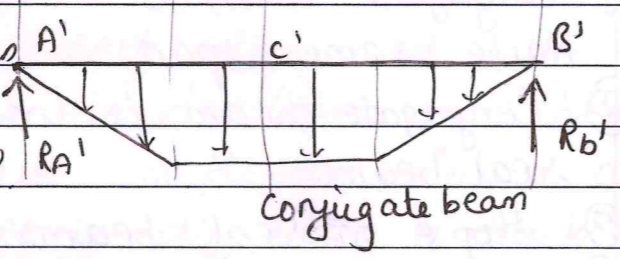 A' C' B'
RA' Rb'
Conjugate beam